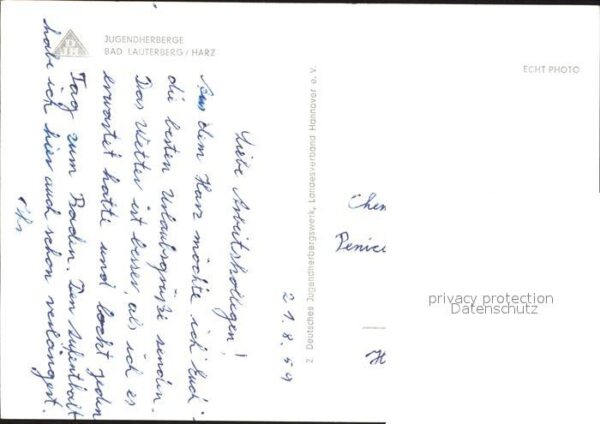 DJH
JUGENDHERBERGE
BAD LAUTERBERG / HARZ
ECHT PHOTO
21.8.59
Liebe Arbeitskollegen!
Aus dem Harz möchte ich Euch
die besten Urlaubsgrüße senden.
Das Wetter ist besser, als ich es
erwartet hatte und lockt jeden
Tag zum Baden. Den Aufenthalt
habe ich hier auch schon verlängert.
2 Deutsches Jugendherbergswerk, Landesverband Hannover e. V.
Chem
Penici
H
privacy protection
Datenschutz